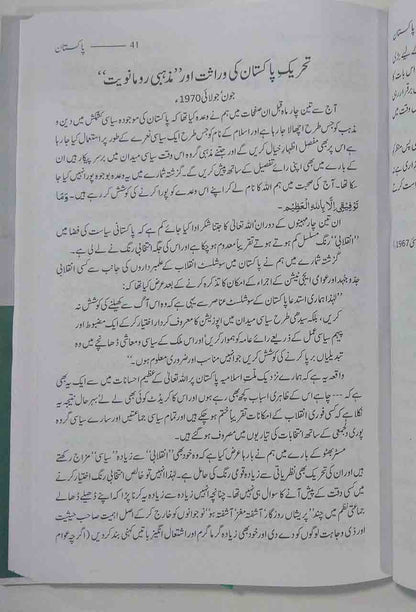 پاکستان —— 41
تحریکِ پاکستان کی وراثت اور ”مذہبی رومانویت“
جون؍جولائی 1970ء
آج سے تین چار ماہ قبل ان صفحات میں ہم نے وعدہ کیا تھا کہ پاکستان کی موجودہ سیاسی کشمکش میں دین و
مذہب کو جس طرح اچھالا جا رہا ہے اور اسلام کے نام کو جس طرح ایک سیاسی نعرے کے طور پر استعمال کیا جا رہا
ہے اس پر بھی مفصل اظہارِ خیال کریں گے اور جتنے مذہبی گروہ اس وقت سیاسی میدان میں برسرِ پیکار ہیں ان
کے بارے میں بھی اپنی رائے تفصیل کے ساتھ پیش کریں گے۔ گزشتہ شمارے میں یہ وعدہ بوجوہ پورا نہیں کیا جا
سکا تھا۔ آج کی صحبت میں ہم اللہ کا نام لے کر اپنے اس وعدے کو پورا کرنے کی کوشش کر رہے ہیں۔ وَمَا
تَوْفِیْقِی اِلَّا بِاللّٰہِ الْعَظِیْمِ۔
ان تین چار مہینوں کے دوران اللہ تعالیٰ کا جتنا شکر ادا کیا جائے کم ہے کہ پاکستانی سیاست کی فضا میں
”انقلابی“ رنگ مسلسل کم ہوتے ہوتے تقریباً معدوم ہو چکا ہے اور اس کی جگہ انتخابی رنگ نے لے لی ہے۔
گزشتہ شمارے میں ہم نے پاکستان میں سوشلسٹ انقلاب کے علمبرداروں کی جانب سے کسی انقلابی
جدوجہد اور عوامی ایجی ٹیشن کے اجراء کے امکان کا تذکرہ کرنے کے بعد عرض کیا تھا کہ:
”لہٰذا ہماری استدعا پاکستان کے سوشلسٹ عناصر سے یہی ہے کہ وہ اس آگ سے کھیلنے کی کوشش نہ
کریں، بلکہ سیدھی طرح سیاسی میدان میں اپوزیشن کا معروف کردار اختیار کر کے ایک مضبوط اور
پیہم سیاسی عمل کے ذریعے رائے عامہ کو ہموار کریں اور اس ملک کے سیاسی و معاشی ڈھانچے میں وہ
تبدیلیاں برپا کرنے کی کوشش کریں جو انہیں مناسب اور ضروری معلوم ہوں۔“
واقعہ یہ ہے کہ ہمارے نزدیک ملت اسلامیہ پاکستان پر اللہ تعالیٰ کے عظیم احسانات میں سے ایک یہ بھی
ہے کہ --- چاہے اس کے ظاہری اسباب کچھ بھی رہے ہوں اور اس کا کریڈٹ کوئی بھی لے لے بہرحال نتیجہ یہ
نکلا ہے کہ کسی فوری انقلاب کے امکانات تو تقریباً ختم ہو چکے ہیں اور تمام سیاسی جماعتیں اور سارے سیاسی گروہ
پوری دلجمعی کے ساتھ انتخابات کی تیاریوں میں مصروف ہو گئے ہیں۔
مسٹر بھٹو کے بارے میں ہم نے بارہا عرض کیا ہے کہ وہ خود بھی ”انقلابی“ سے زیادہ ”سیاسی“ مزاج رکھتے
ہیں اور ان کی تحریک بھی نظریاتی سے زیادہ قومی رنگ کی حامل ہے۔ لہٰذا انہیں تو خالص انتخابی رنگ اختیار کرنے
میں کسی دقت کے پیش آنے کا سوال ہی نہیں تھا۔ چنانچہ انہیں زیادہ سے زیادہ یہ کرنا پڑا کہ اپنے ڈھیلے ڈھالے
جماعتی نظم میں چند ”پریشاں روزگار، آشفتہ مغز، آشفتہ ہو“ نوجوانوں کو خارج کر کے اصل اہمیت صاحب حیثیت
اور ذی وجاہت لوگوں کو دے دی اور خود بھی زیادہ گرما گرم اور اشتعال انگیز باتیں کہنی بند کر دیں (اگرچہ عوام